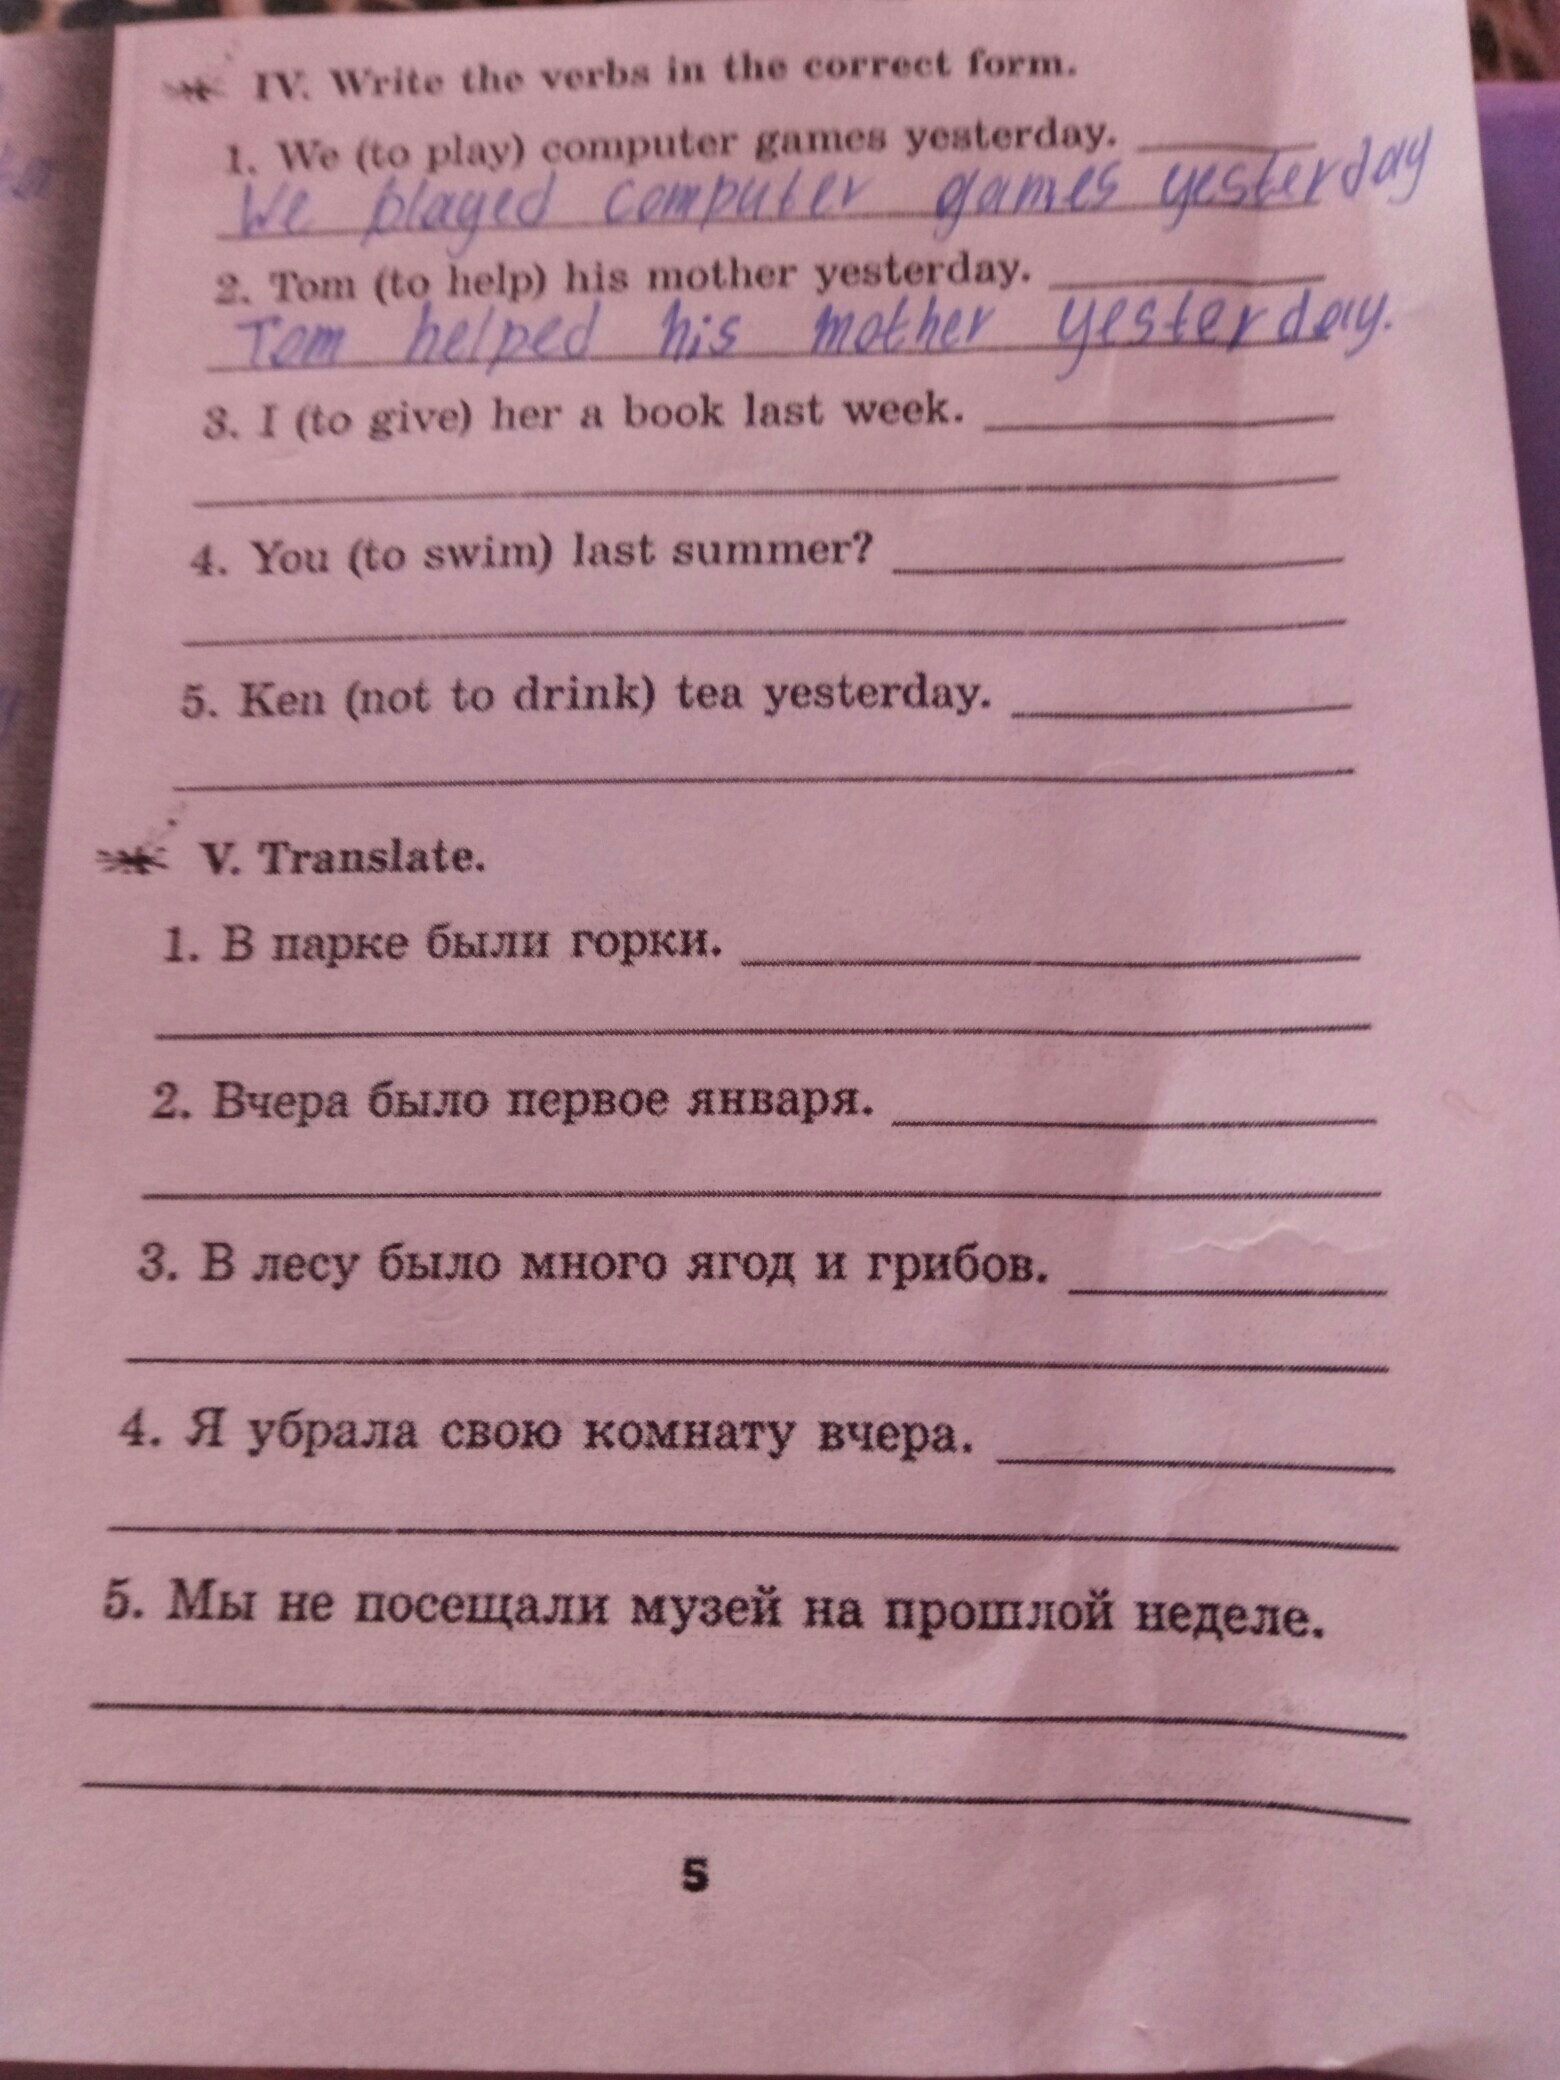 IV. Write the verbs in the correct form.
1. We (to play) computer games yesterday.
We played computer games yesterday
2. Tom (to help) his mother yesterday.
Tom helped his mother yesterday.
3. I (to give) her a book last week.
4. You (to swim) last summer?
5. Ken (not to drink) tea yesterday.
V. Translate.
1. В парке были горки.
2. Вчера было первое января.
3. В лесу было много ягод и грибов.
4. Я убрала свою комнату вчера.
5. Мы не посещали музей на прошлой неделе.
5